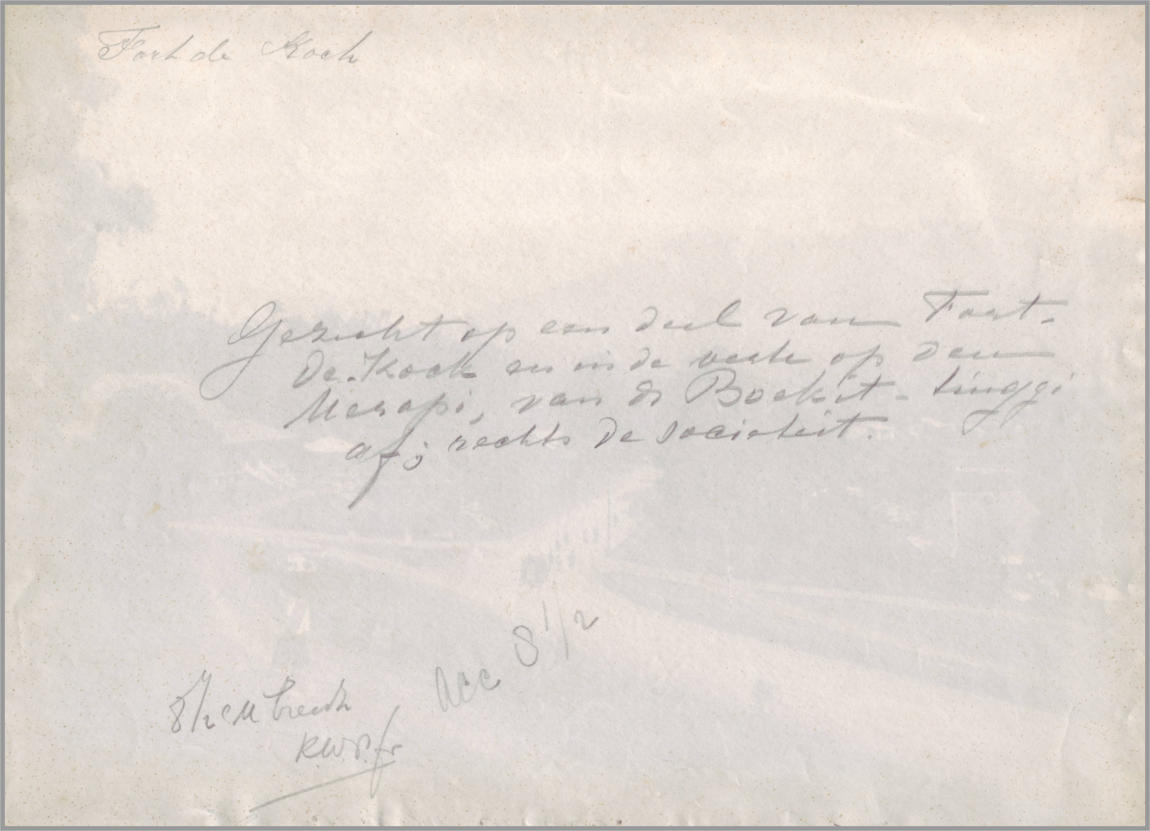 Fort de Kock
Gezicht op een deel van Fort-
de Kock en in de verte op den
Merapi, van de Boekit-tinggi
af; rechts de sociëteit.
acc 8 1/2
8 1/2 cM breed